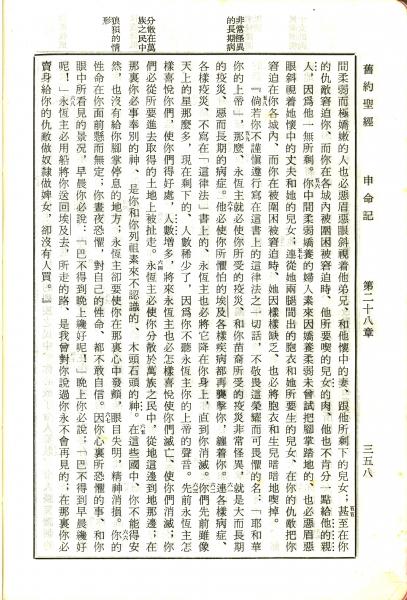 舊約聖經
申命記
第二十八章
三五八
間柔弱而極嬌嫩的人也必惡眉惡眼斜視着他弟兄、和他懷中的妻、跟他所剩下的兒女;甚至在你
的仇敵窘迫你、而你在各城內被圍困被窘迫時、他所要喫的兒女的肉、他也不肯分一點給他的親
人,因爲他一無所剩。你中間柔弱嬌養的婦人素來因嬌養柔弱未嘗試把腳掌踏地的、也必惡眉惡
眼斜視着她懷中的丈夫和她的兒女、連從她兩腿間出的胞衣和她所要生的兒女、在你的仇敵把你
窘迫在你各城內、而你在被圍困被窘迫時、她因樣樣缺乏、也必將胞衣和生兒暗暗地喫掉。
『倘若你不謹愼遵行寫在這書上的這律法之一切話、不敬畏這榮耀而可畏懼的名:「耶和華
非常怪異
的長期病
你的上帝」,那麼、永恆主就必使你所受的疫災、和你苗裔所受的疫災非常怪異、就是大而長期
的疫災,惡而長期的病症。他必使你所懼怕的埃及各樣疾病都再襲擊你,纏着你。連各樣病症、
各樣疫災、不寫在「這律法」書上的、永恆主也必將它降在你身上,直到你消滅。你們先前雖像
天上的星那麼多,現在剩下的、人數稀少了,因爲你不聽永恆主你的上帝的聲音。先前永恆主怎
樣喜悅你們,使你們得好處,人數增多,將來永恆主也必怎樣喜悅使你們滅亡、使你們消滅;你
們必從所要進去取得的土地上被扯走。永恆主必使你分散於萬族之民中,從地這邊到地那邊;在
分散在萬
族之民中
那裏你必事奉別的神、是你和你列祖素來不認識的、木頭石頭的神。在這些國中、你不能得安
然,也沒有給你腳掌停息的地方;永恆主卻要使你在那裏心中發顫,眼目失明,精神消損。你的
狼狽的情
形
性命在你面前懸而無定;你晝夜恐懼,對自己的性命、都不敢自信。因你心裏所恐懼的事、和你
眼中所看見的景況,早晨你必說:「巴不得到晚上纔好呢!」晚上你必說:「巴不得到早晨纔好
呢!」永恆主必用船將你送回埃及去,所走的路、是我曾對你說過你永不會再見的;在那裏你必
賣身給你的仇敵做奴隸做婢女,卻沒有人買。』